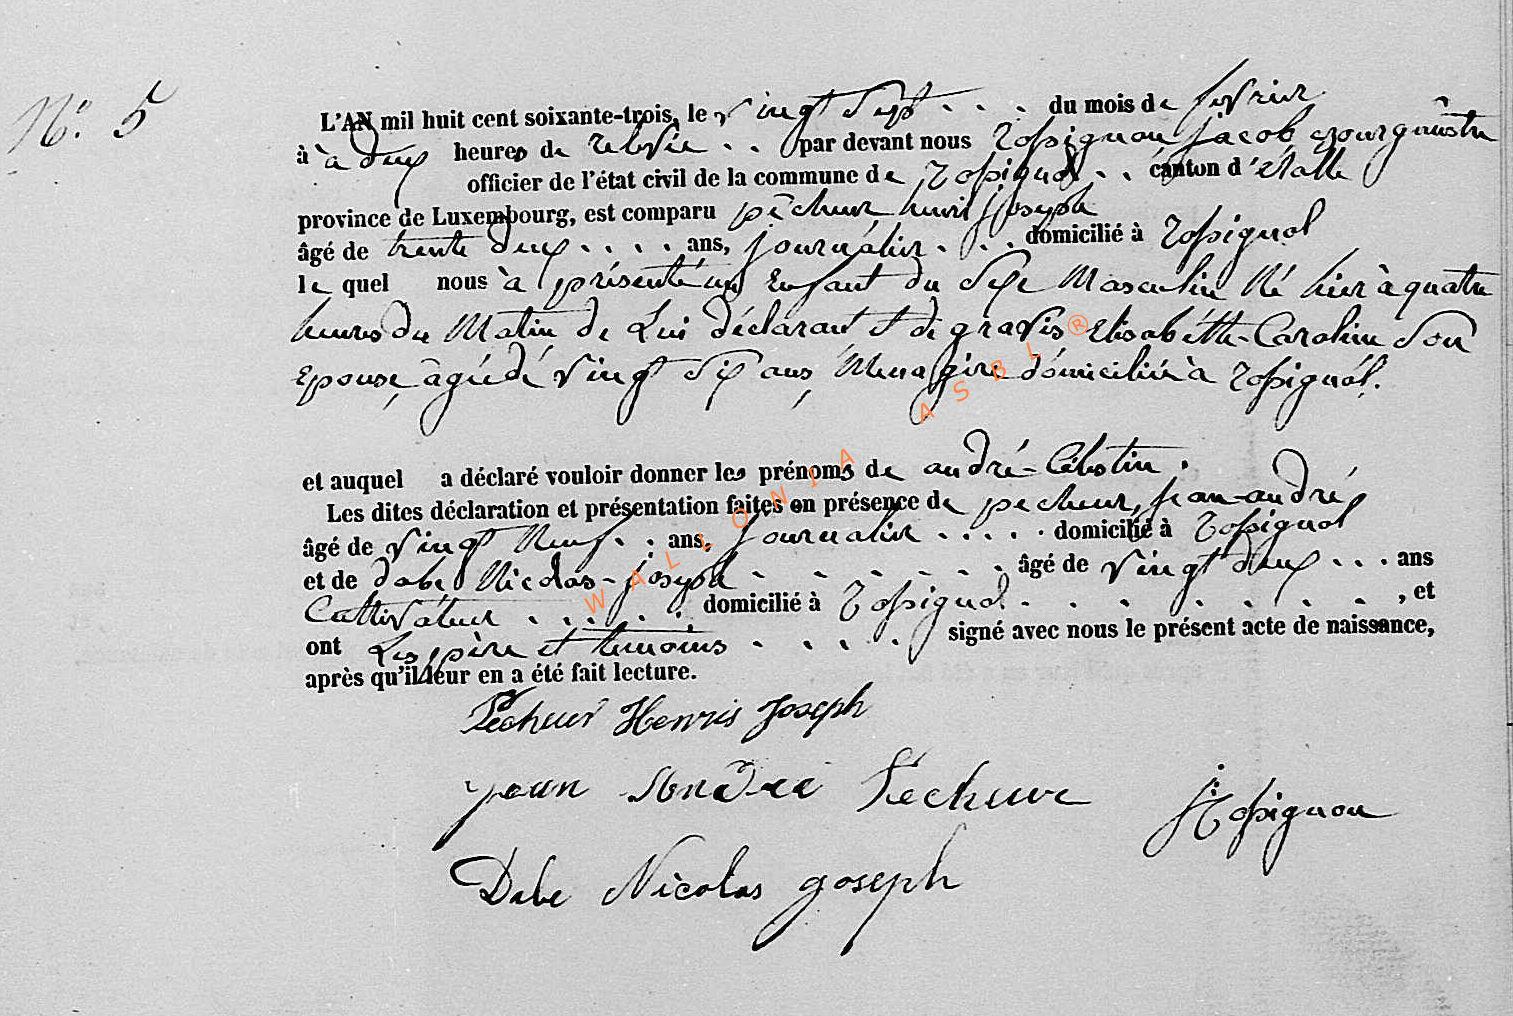 N.° 5
L'AN mil huit cent soixante-trois, le vingt sept . . . du mois de fevrier
à à deux heures de relevée . . par devant nous Rossignon jacob Bourguéstre
officier de l'état civil de la commune de Rossignol . . canton d'étalle
province de Luxembourg, est comparu pêcheur henri joseph
âgé de trente deux . . . . ans, journalier . . . domicilié à Rossignol
le quel nous à présenté un Enfant du Sexe Masculin Né hier à quatre
heures du Matin de Lui déclarant et de gravis Elisabétte-Caroline Son
Epouse, âgée dé vingt Six ans, Menagire domiciliée à Rossignol.
et auquel a déclaré vouloir donner les prénoms de andré-Célestin.
Les dites déclaration et présentation faites en présence de pecheur, jean-andré
âgé de vingt Neuf . . ans, journalier . . . . . domicilié à Rossignol
et de dabe Nicolas-joseph . . . . . . âgé de vingt deux . . . ans
Cultivateur . . . . . . domicilié à Rossignol . . . . . . . , et
ont Les père et temoins . . . . . signé avec nous le présent acte de naissance,
après qu'il leur en a été fait lecture.
Pecheur Henris Joseph
jean Andre Pecheur
J: Rossignon
Dabe Nicolas Joseph
WALLONIA ASBL ®